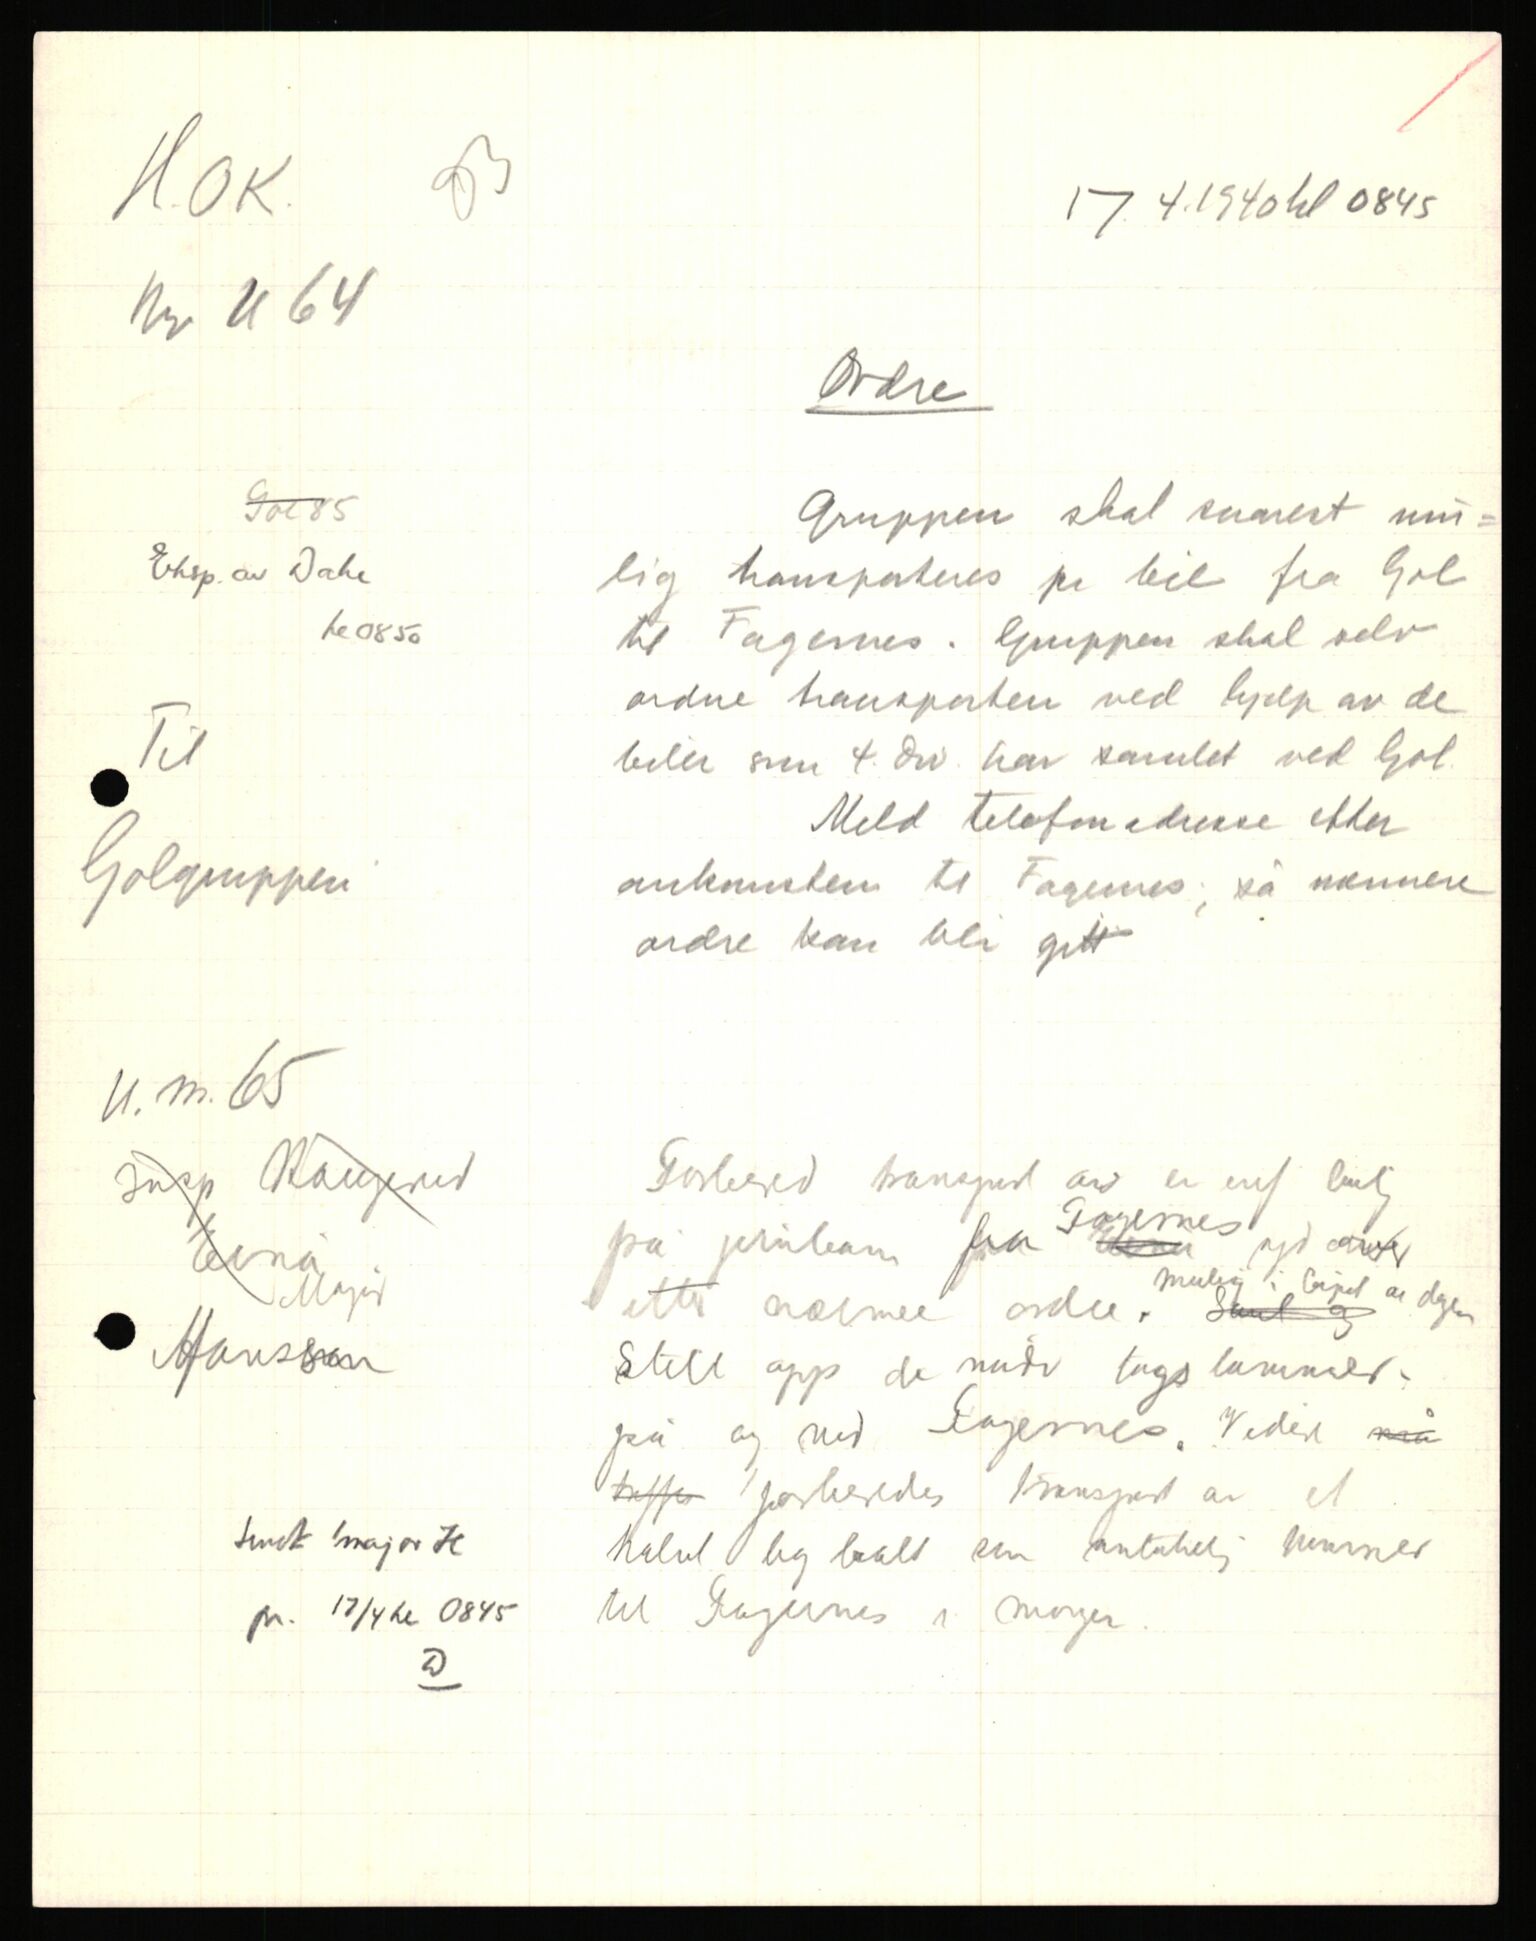 H.OK.
17. 4. 1940 kl 0845
Nr U 64
Ordre
Gol 85
Eksp. av Dahl
kl 0850
Til
Golgruppen
Gruppen skal snarest mu=
lig transporteres pr bil fra Gol
til Fagernes. Gruppen skal selv
ordne transporten ved hjelp av de
biler som 4. Div. har samlet ved Gol.
Meld telefonadresse etter
ankomsten til Fagernes; så nærmere
ordre kan bli gitt
U. m. 65
Insp
Elnå
Major
Hansson
Forbered transport av en inf batj
på jernbane fra Elnå Fagernes syd
etter nærmere ordre. mulig i løpet av dagen
Still opp de nødv togs
på og ved Fagernes. Videre må
treffes forberedes transport av et
halvt lag batt som antakelig kommer
til Fagernes i morgen.
Sendt major H
pr. 17/4 kl 0845
D